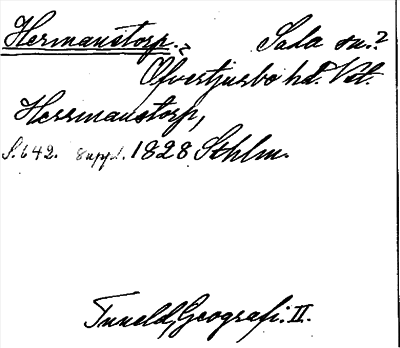 Hermanstorp.? Sala sn.?
Öfvertjurbo hd. Vstl.
Herrmanstorp,
S. 642. 8 uppl. 1828 Sthlm.
Tuneld, Geografi. II.